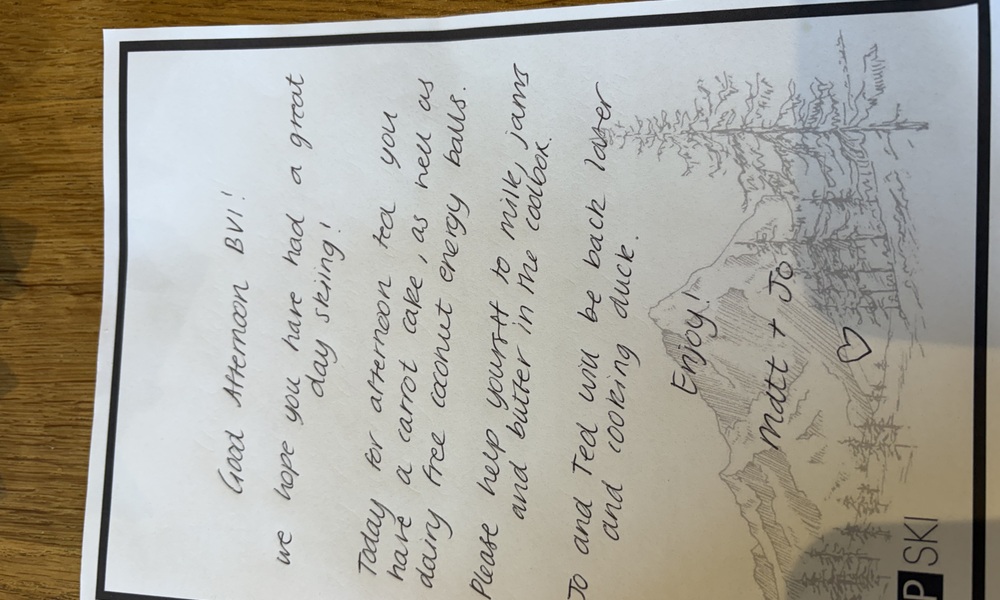 Good Afternoon BVI!
we hope you have had a great
day skiing!
Today for afternoon tea you
have a carrot cake, as well as
dairy free coconut energy balls.
Please help yourself to milk, jams
and butter in the coolbox.
Jo and Ted will be back later
and cooking duck.
Enjoy!
Matt + Jo
P SKI